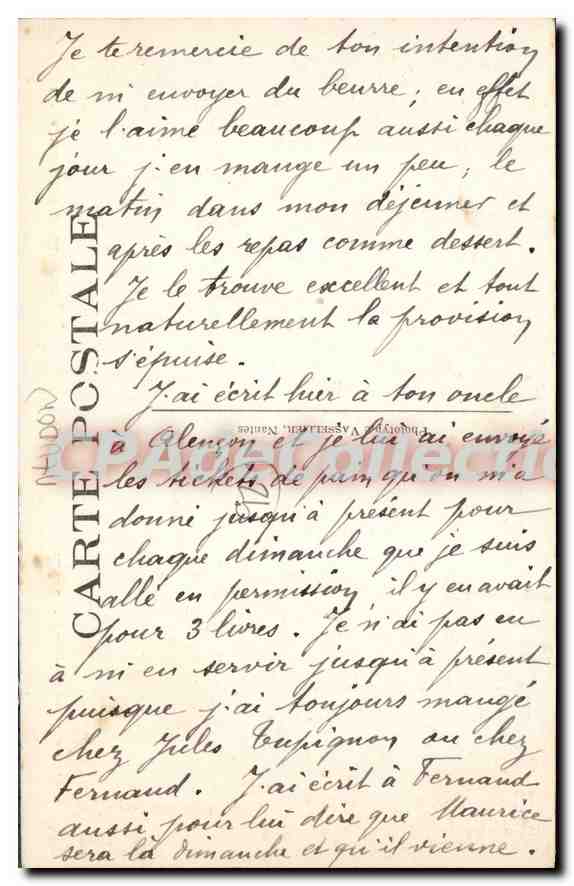 Je te remercie de ton intention
de m'envoyer du beurre ; en effet
je l'aime beaucoup aussi chaque
jour j'en mange un peu, le
matin dans mon déjeuner et
après les repas comme dessert.
Je le trouve excellent et tout
naturellement la provision
s'épuise.
J'ai écrit hier à ton oncle
à Alençon et je lui ai envoyé
les tickets de pain qu'on m'a
donné jusqu'à présent pour
chaque dimanche que je suis
allé en permission il y en avait
pour 3 livres. Je n'ai pas eu
à m'en servir jusqu'à présent
puisque j'ai toujours mangé
chez Jules Tupignon ou chez
Fernand. J'ai écrit à Fernand
aussi pour lui dire que Maurice
sera là dimanche et qu'il vienne.
CARTE POSTALE
Phototypie VASSELLIER, Nantes
CPACollection